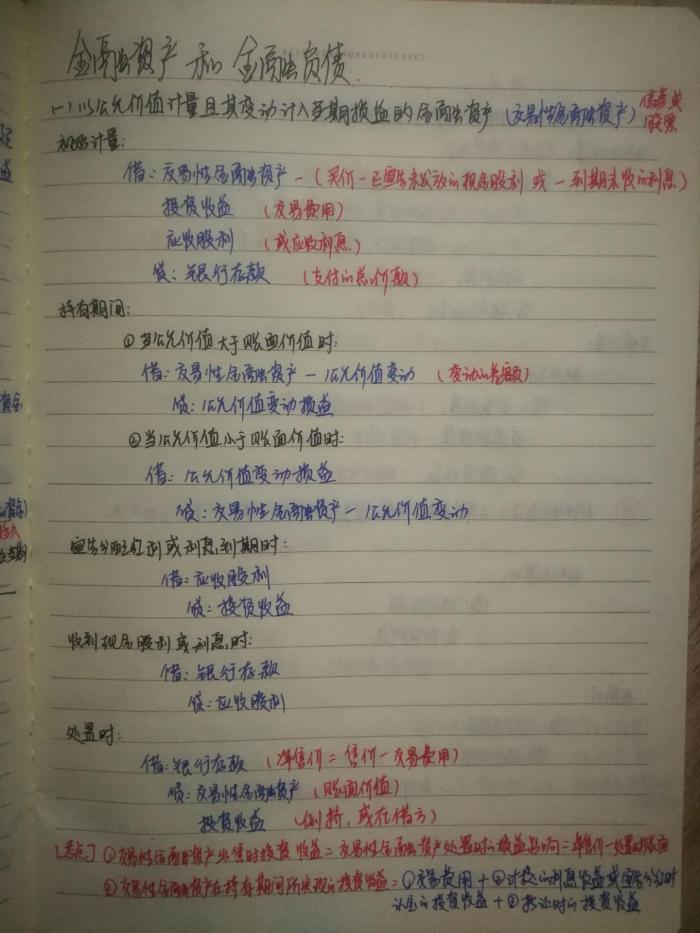 金融资产和金融负债.
一)以公允价值计量且其变动计入当期损益的金融资产 (交易性金融资产) 债券或
股票
初始计量:
借: 交易性金融资产 — (买价一已宣告未发放的现金股利 或 一到期未收的利息)
投资收益 (交易费用)
应收股利 (或应收利息)
贷: 银行存款 (支付的总价款)
持有期间:
①当公允价值大于账面价值时:
借: 交易性金融资产 — 公允价值变动 (变动的差额)
贷: 公允价值变动损益
②当公允价值小于账面价值时:
借: 公允价值变动损益
贷: 交易性金融资产 — 公允价值变动
宣告分配红利或利息到期时:
借: 应收股利
贷: 投资收益
收到现金股利或利息时:
借: 银行存款
贷: 应收股利
处置时:
借: 银行存款 (净售价 = 售价一交易费用)
贷: 交易性金融资产 (账面价值)
投资收益 (倒挤, 或在借方)
[考点] ①交易性金融资产出售时投资收益 = 交易性金融资产处置时的损益影响 = 净售价一处置时账面
②交易性金融资产在持有期间所实现的投资收益 = ①交易费用 + ②计提的利息收益或宣告分红时
认定的投资收益 + ③转让时的投资收益